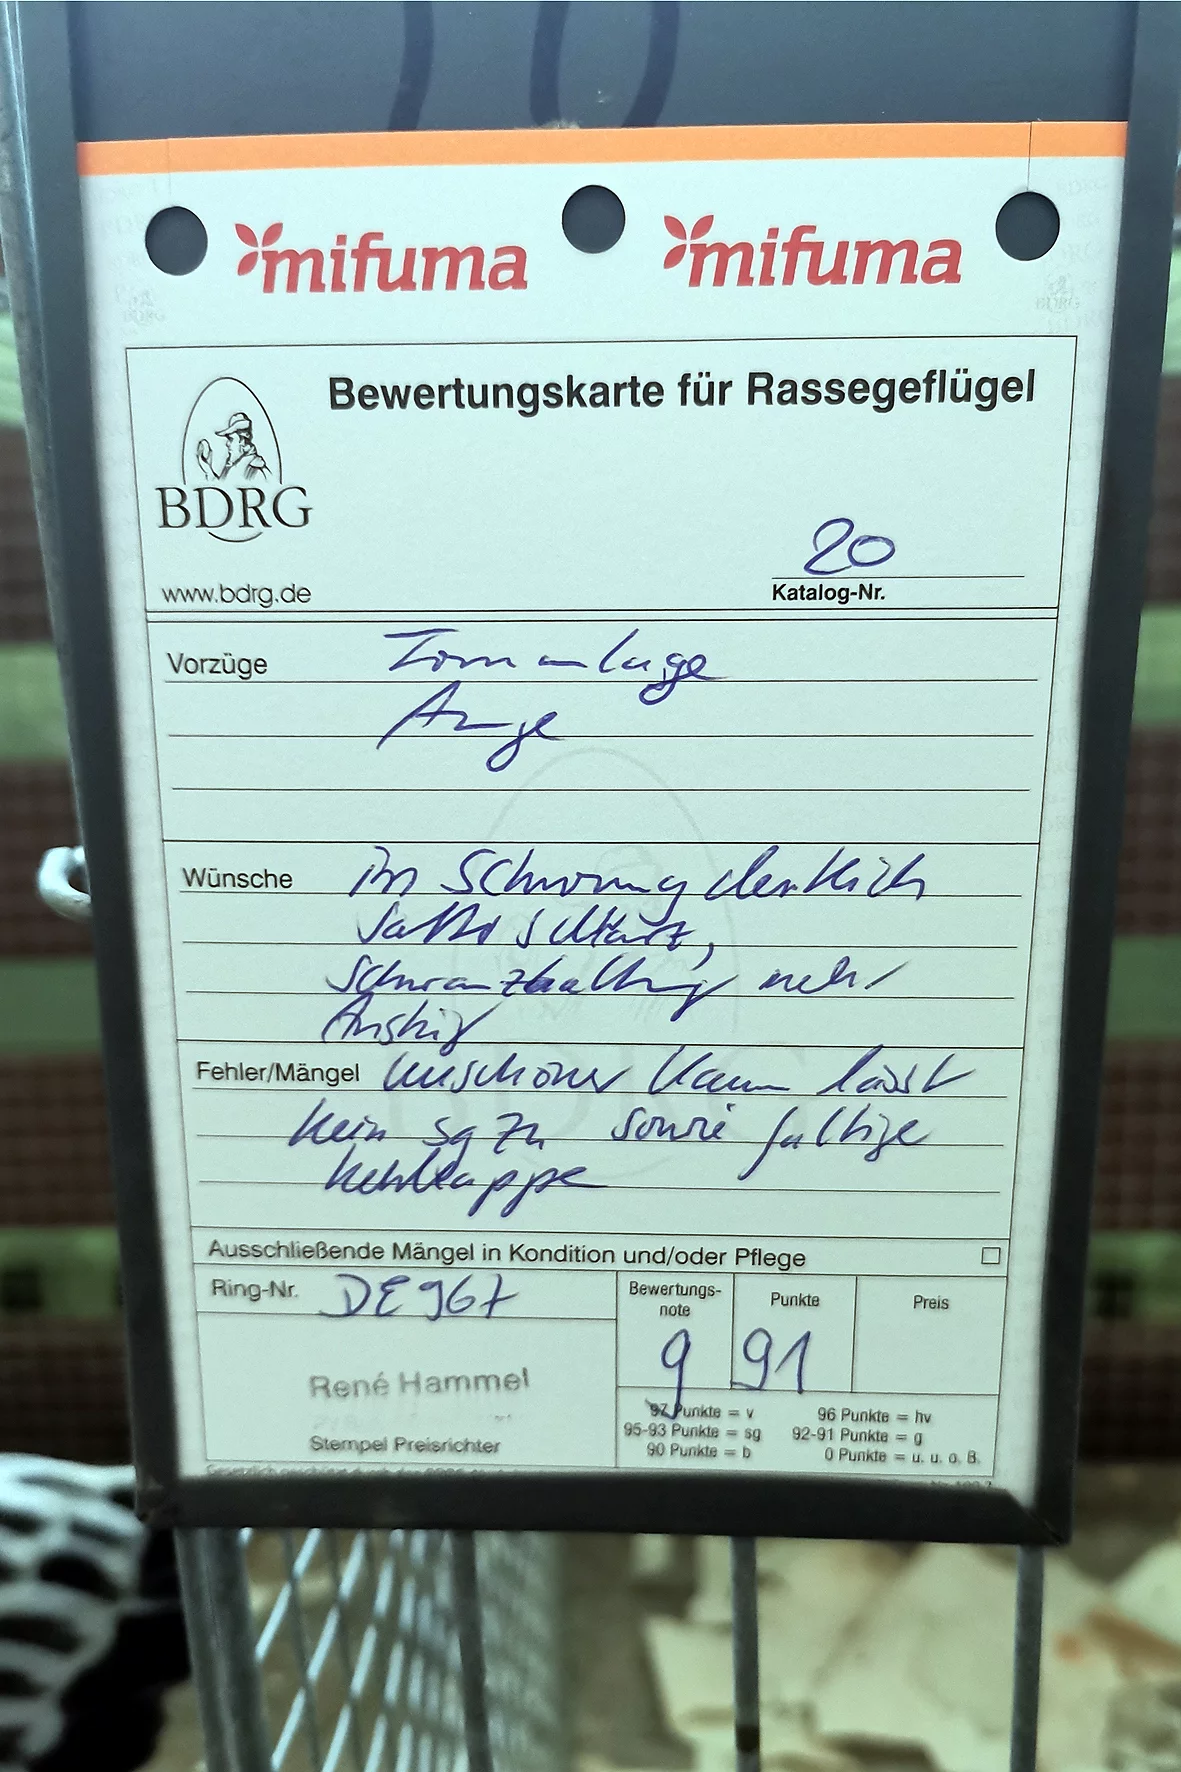 mifuma mifuma
Bewertungskarte für Rassegeflügel
BDRG
www.bdrg.de
20
Katalog-Nr.
Vorzüge Formanlage
Auge
Wünsche im Schwung deutlich
satter schwarz,
Schwanzhaltung mehr
Anstieg
Fehler/Mängel unschöner Kamm lässt
kein sg zu sowie faltige
Kehllappe
Ausschließende Mängel in Kondition und/oder Pflege
Ring-Nr. DE 967
Bewertungs-
note
Punkte
Preis
g 91
René Hammel
Stempel Preisrichter
97 Punkte = v 96 Punkte = hv
95-93 Punkte = sg 92-91 Punkte = g
90 Punkte = b 0 Punkte = u. u. o. B.